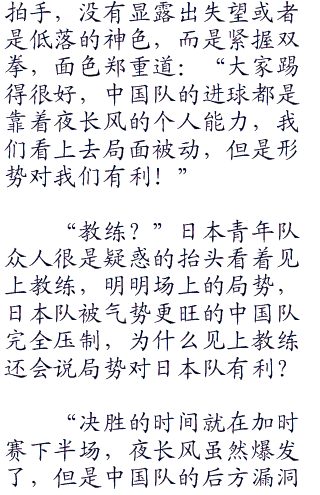 拍手，没有显露出失望或者
是低落的神色，而是紧握双
拳，面色郑重道：“大家踢
得很好，中国队的进球都是
靠着夜长风的个人能力，我
们看上去局面被动，但是形
势对我们有利！”
“教练？”日本青年队
众人很是疑惑的抬头看着见
上教练，明明场上的局势，
日本队被气势更旺的中国队
完全压制，为什么见上教练
还会说局势对日本队有利？
“决胜的时间就在加时
赛下半场，夜长风虽然爆发
了，但是中国队的后方漏洞